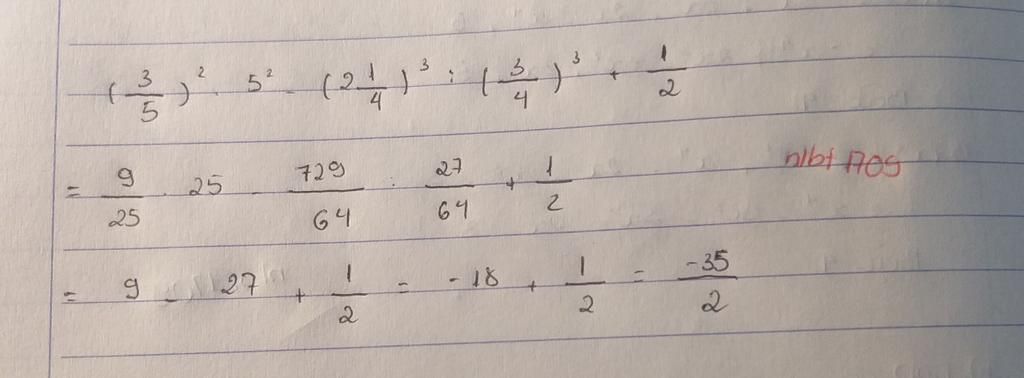 (3/5)² . 5² - (2 1/4)³ : (3/4)³ + 1/2
= 9/25 . 25 - 729/64 : 27/64 + 1/2
= 9 - 27 + 1/2 = -18 + 1/2 = -35/2